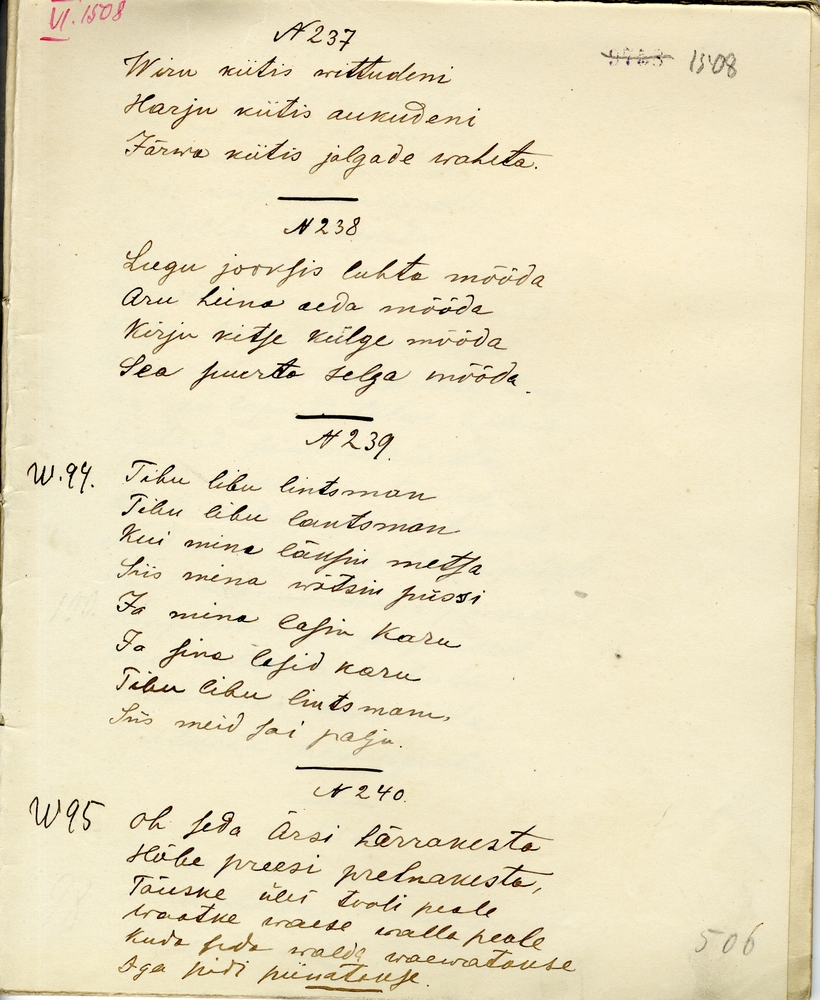 VI. 1508
1508
N 237
Wiru kütis wittudeni
Harju kütis aukudeni
Järwa kütis jalgade wahelta.
N 238
Lugu jooksis luhta mööda
Aru heina aeda mööda
Kirju kitse külge mööda
Sea puerta selga mööda.
N 239.
W. 94. Tibu libu lintsman
Tibu libu lantsman
Kui mina läksin metsa
Siis mina wõtsin püssi
Ja mina lasin karu
Ja sina lasid karu
Tibu libu lintsmann,
Siis meid sai palju.
N 240.
W 95 Oh seda Ärsi härrakesta
Hõbe preesi prelnakesta,
Tõuske üles tooli peale
Waatke waese walla peale
Kuda seda walda waewatakse
Iga pidi piinatakse.
506